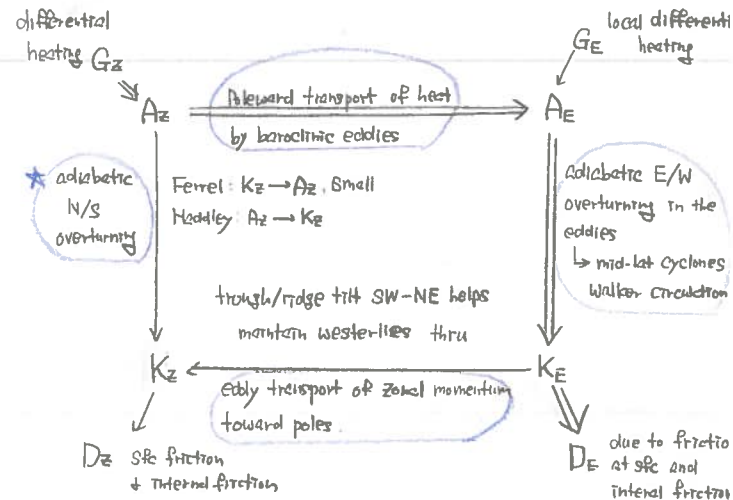 differential
heating Gz
GE
local differenti
heating
Az
Poleward transport of heat
by baroclinic eddies
AE
★ adiabatic
N/S
overturning
Ferrel: Kz → Az, small
Haddley: Az → Kz
adiabatic E/W
overturning in the
eddies
↳ mid-lat cyclones
Walker circulation
trough/ridge tilt SW-NE helps
maintain westerlies thru
Kz
KE
eddy transport of zonal momentum
toward poles.
Dz sfc friction
+ internal friction
DE due to frictio
at sfc and
interal friction